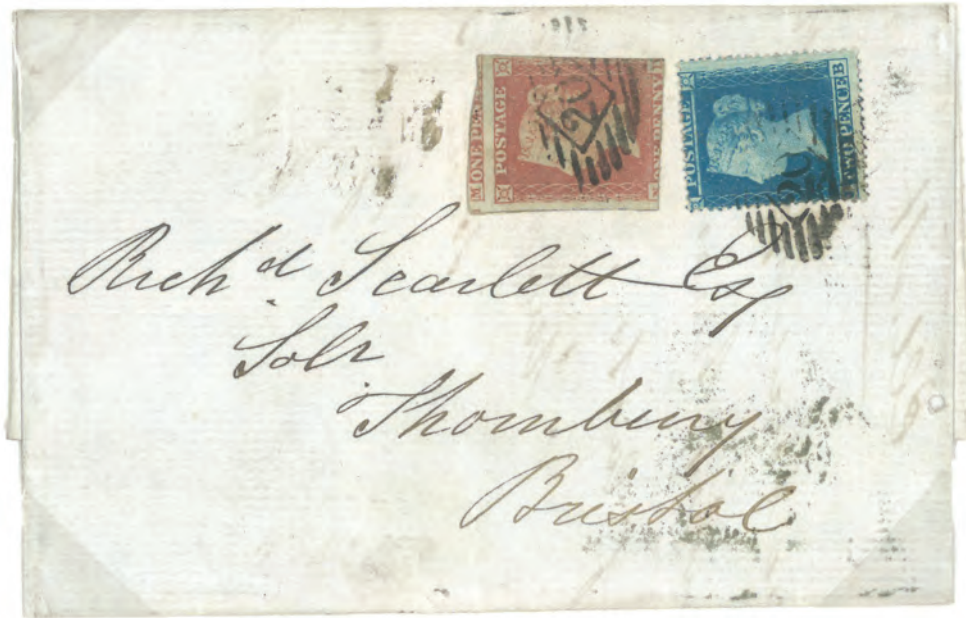 POSTAGE
ONE PE
POSTAGE
TWO PENCE
Richd Scarlett Esq
Solr
Thornbury
Bristol